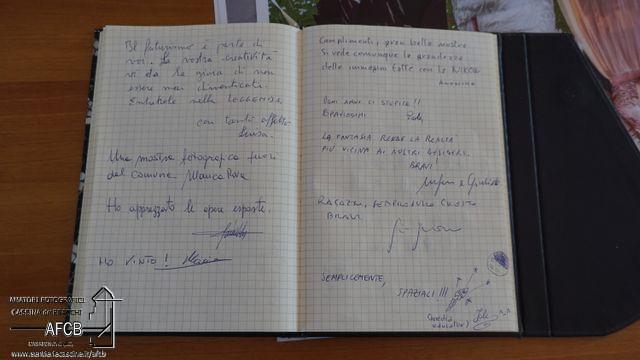 Il futurismo è parte di
voi. La vostra creatività
vi dà la gioia di non
essere mai dimenticati.
Entrerete nella LEGGENDA
con tanto affetto
Luisa.
Una mostra fotografica fuori
dal comune
Ho apprezzato le opere esposte.
HO VINTO!
Complimenti, gran bella mostra
Si vede comunque la grandezza
delle immagini fatte con la NIKON
Anonimo
OGNI ANNO CI STUPITE!!
BRAVISSIMI
LA FANTASIA RENDE LA REALTÀ
PIÙ VICINA AI NOSTRI DESIDERI.
BRAVI!
RAGAZZI, SEMPRE SULLO GIUSTO
BRAVI
SEMPLICEMENTE,
SPAZIALI!!!
AMATORI FOTOGRAFICI
CASSINA de' PECCHI
AFCB
www.amicidicassina.eu/afcb